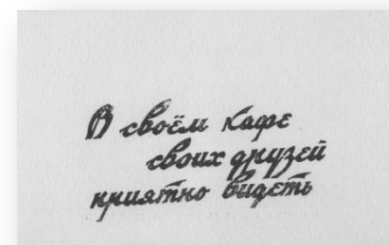 В своём кафе
своих друзей
приятно видеть